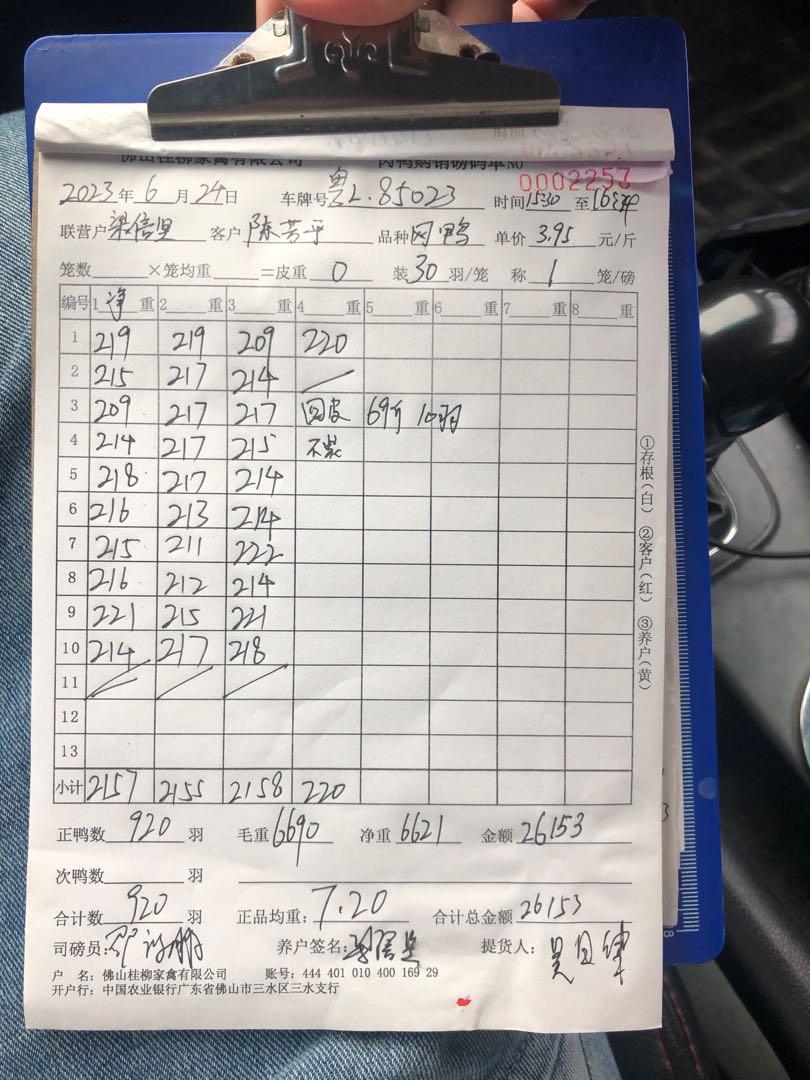 佛山桂柳家禽有限公司 肉鸭购销磅码单NO
0002257
2023年6月24日 车牌号粤L.85023 时间15:30至16:34
联营户梁信坚 客户陈芳平 品种网鸭 单价3.95元/斤
笼数 ×笼均重 =皮重0 装30羽/笼 称1笼/磅
编号 1净重 2重 3重 4重 5重 6重 7重 8重
1 219 219 209 220
2 215 217 214 /
3 209 217 217 回皮 69斤 10羽
4 214 217 215 不装
5 218 217 214
6 216 213 214
7 215 211 222
8 216 212 214
9 221 215 221
10 214 217 218
11
12
13
小计 2157 2155 2158 220
①存根(白) ②客户(红) ③养户(黄)
正鸭数920羽 毛重6690 净重6621 金额26153
次鸭数 羽
合计数920羽 正品均重:7.20 合计总金额26153
司磅员: 养户签名: 提货人:
户 名: 佛山桂柳家禽有限公司 账号: 444 401 010 400 169 29
开户行: 中国农业银行广东省佛山市三水区三水支行